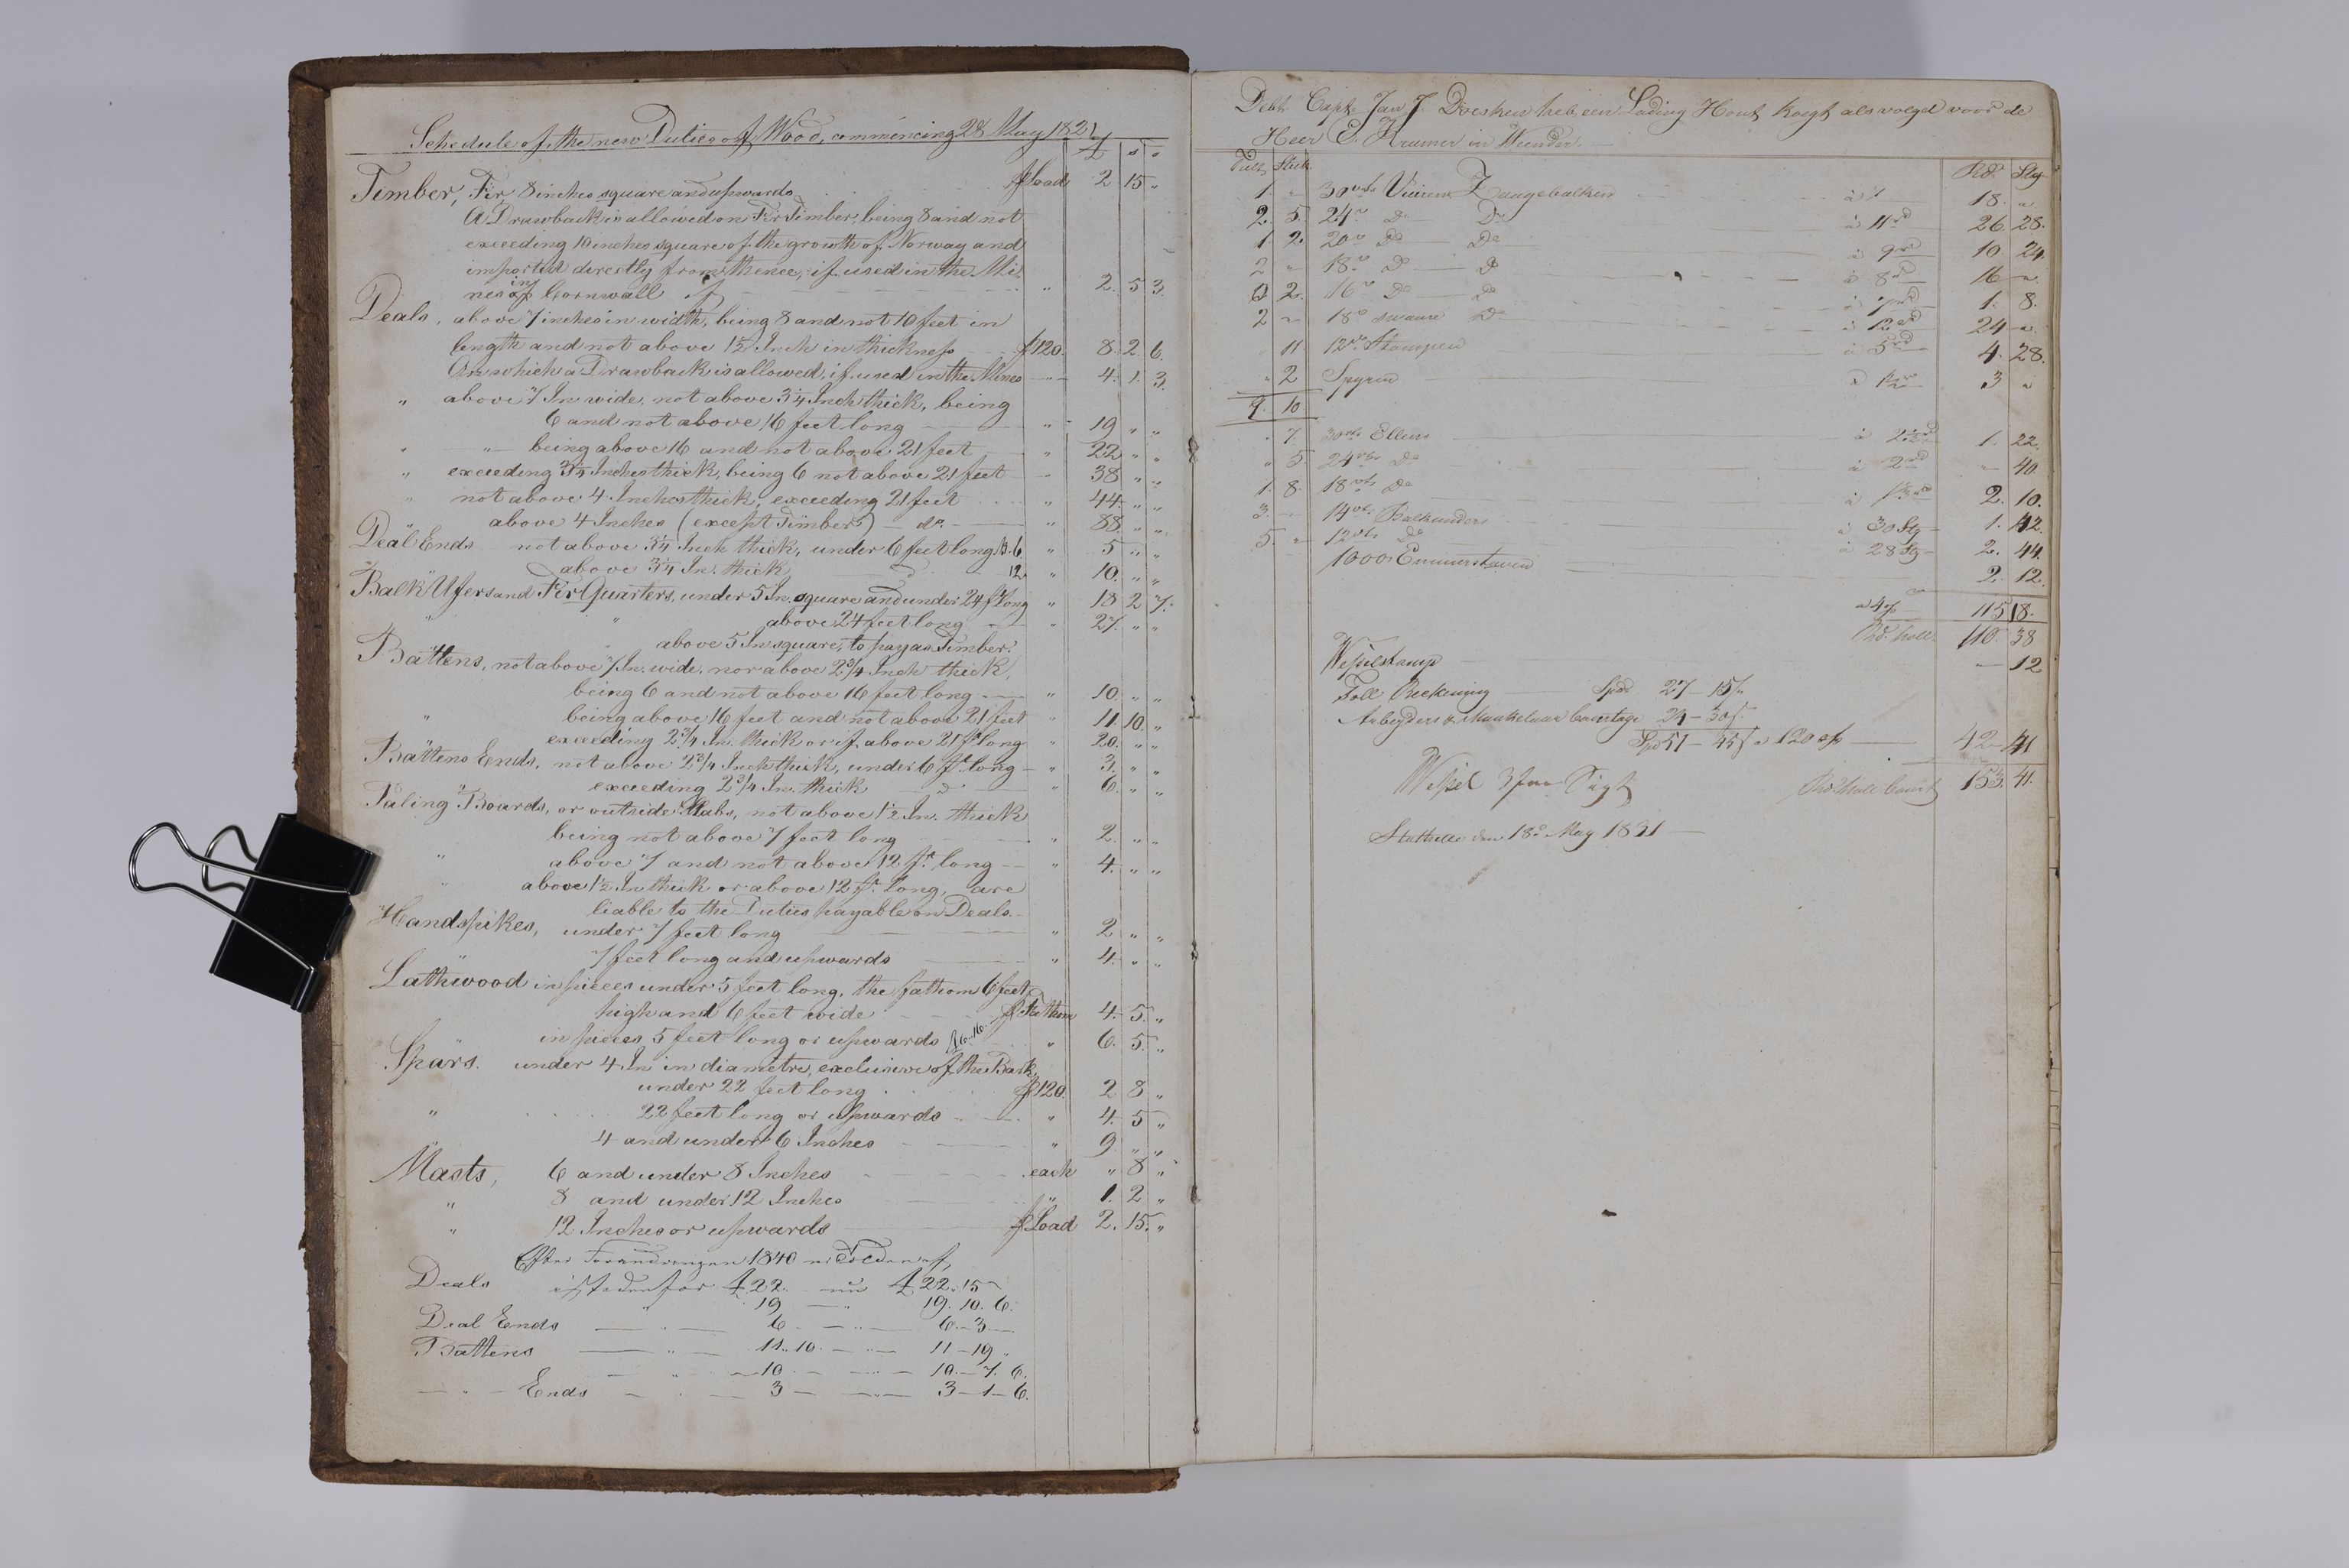 Schedule of the new Duties of Wood, commencing 28 May 1821
£ s "
Timber, Fir, 8 inches square and upwards ℔ Load 2 15 "
A Drawback is allowed on Fir Timber, being 8 and not
exceeding 10 inches square of the growth of Norway and
imported directly from thence, if used in the Mi-
nes in Cornwall of " 2. 5 3.
Deals, above 7 inches in width, being 8 and not 10 feet in
length and not above 1½ Inch in thickness ℔ 120. 8. 2. 6.
On which a Drawback is allowed, if used in the Mines 4. 1. 3.
" above 7 In wide, not above 3¼ Inch thick, being
6 and not above 16 feet long " 19 " "
" " being above 16 and not above 21 feet " 22 " "
" exceeding 3¼ Inches thick, being 6 not above 21 feet 38 " "
" not above 4 Inches thick, exceeding 21 feet " 44 " "
above 4 Inches (except Timber) do. " 88 " "
Deal Ends not above 3¼ Inch thick, under 6 feet long " 5 " "
" above 3¼ In. thick 12. " 10. " "
Balk Ufers and Fir Quarters, under 5 In. square and under 24 ft long " 18 2 7.
" " above 24 feet long " 27 " "
" above 5 In square, to pay as Timber.
Battens, not above 7 In. wide, nor above 2¾ Inch thick,
being 6 and not above 16 feet long " 10. " "
" being above 16 feet and not above 21 feet " 11. 10. "
exceeding 2¾ In. thick or if above 21 ft long " 20. " "
Battens Ends, not above 2¾ Inch thick, under 6 ft long " 3. " "
" exceeding 2¾ In. thick " 6. " "
Paling Boards, or outside Slabs, not above 1½ In. thick
being not above 7 feet long " 2. " "
" above 7 and not above 12 ft. long " 4. " "
" above 1½ In thick or above 12 ft. long, are
liable to the Duties payable on Deals.
Handspikes, under 7 feet long " 2 " "
" 7 feet long and upwards " 4. " "
Lathwood in pieces under 5 feet long, the fathom 6 feet
high and 6 feet wide ℔ Fathom 4. 5. "
" in pieces 5 feet long or upwards " 6. 5. "
Spars. under 4 In in diametre, exclusive of the Bark,
under 22 feet long ℔ 120. 2 8 "
" 22 feet long or upwards " 4. 5 "
" 4 and under 6 Inches " 9 " "
Masts, 6 and under 8 Inches each " 8 "
" 8 and under 12 Inches " 1. 2 "
" 12 Inches or upwards ℔ Load 2. 15. "
Efter Forandringen 1840
Deals istedenfor £ 22. nu £ 22. 15
" 19 — " 19. 10. 6.
Deal Ends — " — 6 — " — 6 — 3
Battens — " — 11. 10. — " — 11 — 19 "
— " — 10 — " — 10. — 7. 6.
— " — Ends — " — 3 — " — 3 — 1 — 6.
Capt. Jan J. Doesken heb een Lading Hout kogt als volgd voor de
Heer E. Kramer in Weender.
Stuk Stg.
1. " 30 Vuuren 18. "
2. 5. 24 Do Do à 11 26. 28.
1. 2. 20 Do Do à 9 10. 24.
2 " 18 Do Do à 8 16 "
2. 16 Do Do à 7 1. 8.
2 " 18 Do à 12 24 "
" 11. 12 Stompen à 5 4. 28.
" 2 Spyren 3 "
9. 10
" 7. 30 Ellen à 2½ 1. 22.
" 5. 24 Do à 2 " 40
1. 8. 18 Do 2. 10.
3. 14 Balkenders à 30 Stg 1. 42.
5. " 12 Do à 28 Stg 2. 44.
1000 Emmerstaven 2. 12.
à 4% 115 18.
110. 38
Wesselstemp 12
Toll Reckening Spd 27 — 15
24 — 30
Spd 51 — 45 à 120 42 — 41
Wessel Sigt 153. 41.
den 18 May 1821